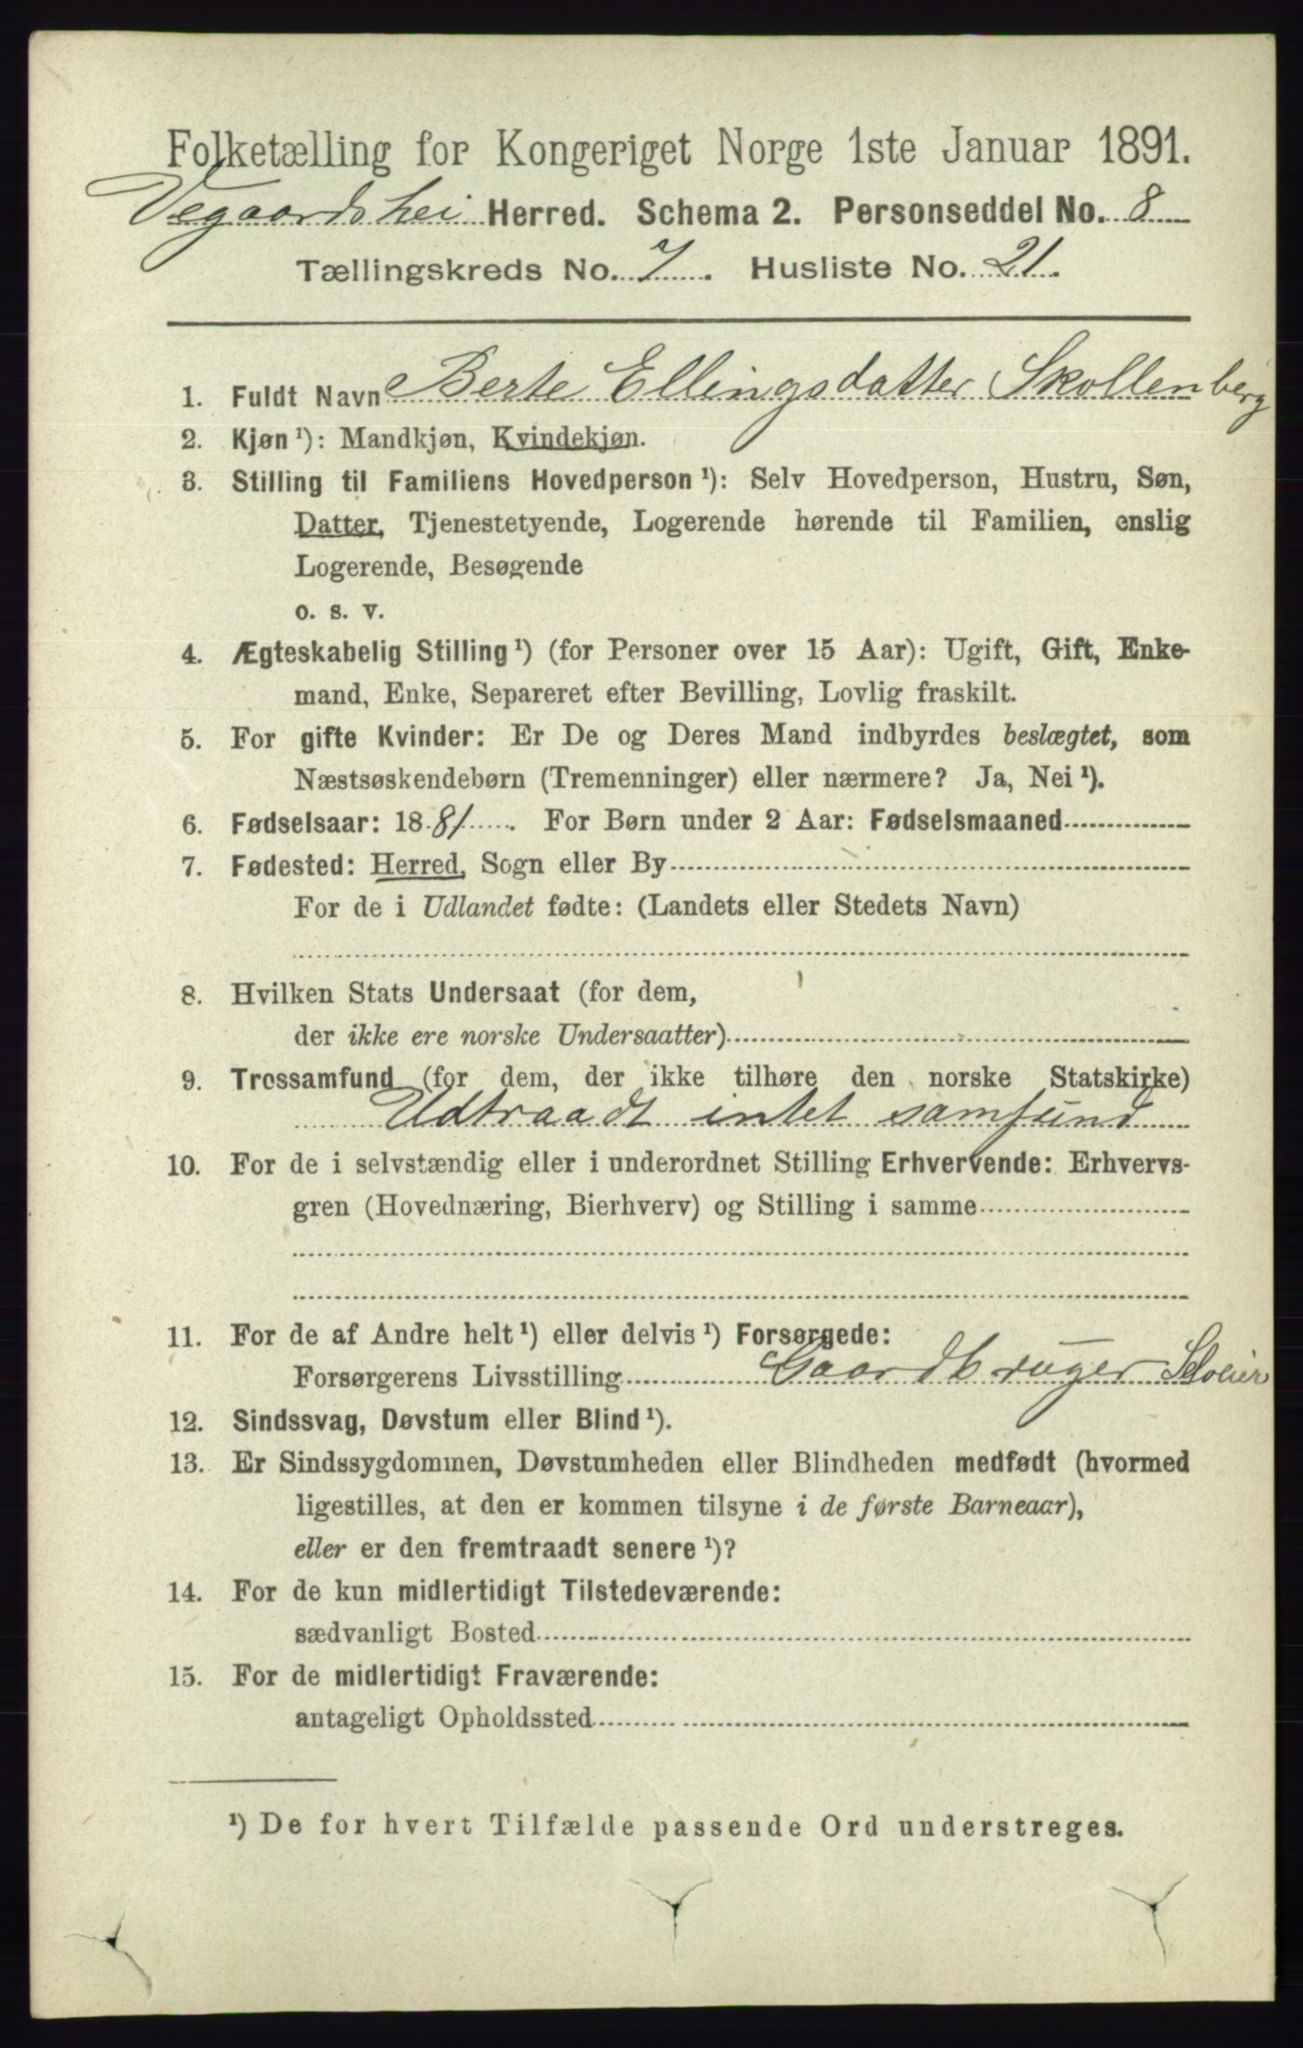 Folketælling for Kongeriget Norge 1ste Januar 1891.
Vegaardshei Herred. Schema 2. Personseddel No. 8
Tællingskreds No. 7. Husliste No. 21.
1. Fuldt Navn Berte Ellingsdatter Skollenberg
2. Kjøn ¹): Mandkjøn, Kvindekjøn.
3. Stilling til Familiens Hovedperson ¹): Selv Hovedperson, Hustru, Søn,
Datter, Tjenestetyende, Logerende hørende til Familien, enslig
Logerende, Besøgende
o. s. v.
4. Ægteskabelig Stilling ¹) (for Personer over 15 Aar): Ugift, Gift, Enke-
mand, Enke, Separeret efter Bevilling, Lovlig fraskilt.
5. For gifte Kvinder: Er De og Deres Mand indbyrdes beslægtet, som
Næstsøskendebørn (Tremenninger) eller nærmere? Ja, Nei ¹).
6. Fødselsaar: 1881. For Børn under 2 Aar: Fødselsmaaned
7. Fødested: Herred, Sogn eller By
For de i Udlandet fødte: (Landets eller Stedets Navn)
8. Hvilken Stats Undersaat (for dem,
der ikke ere norske Undersaatter)
9. Trossamfund (for dem, der ikke tilhøre den norske Statskirke)
Udtraadt intet samfund
10. For de i selvstændig eller i underordnet Stilling Erhvervende: Erhvervs-
gren (Hovednæring, Bierhverv) og Stilling i samme
11. For de af Andre helt ¹) eller delvis ¹) Forsørgede:
Forsørgerens Livsstilling Gaardbruger Seloeier
12. Sindssvag, Døvstum eller Blind ¹).
13. Er Sindssygdommen, Døvstumheden eller Blindheden medfødt (hvormed
ligestilles, at den er kommen tilsyne i de første Barneaar),
eller er den fremtraadt senere ¹)?
14. For de kun midlertidigt Tilstedeværende:
sædvanligt Bosted
15. For de midlertidigt Fraværende:
antageligt Opholdssted
¹) De for hvert Tilfælde passende Ord understreges.